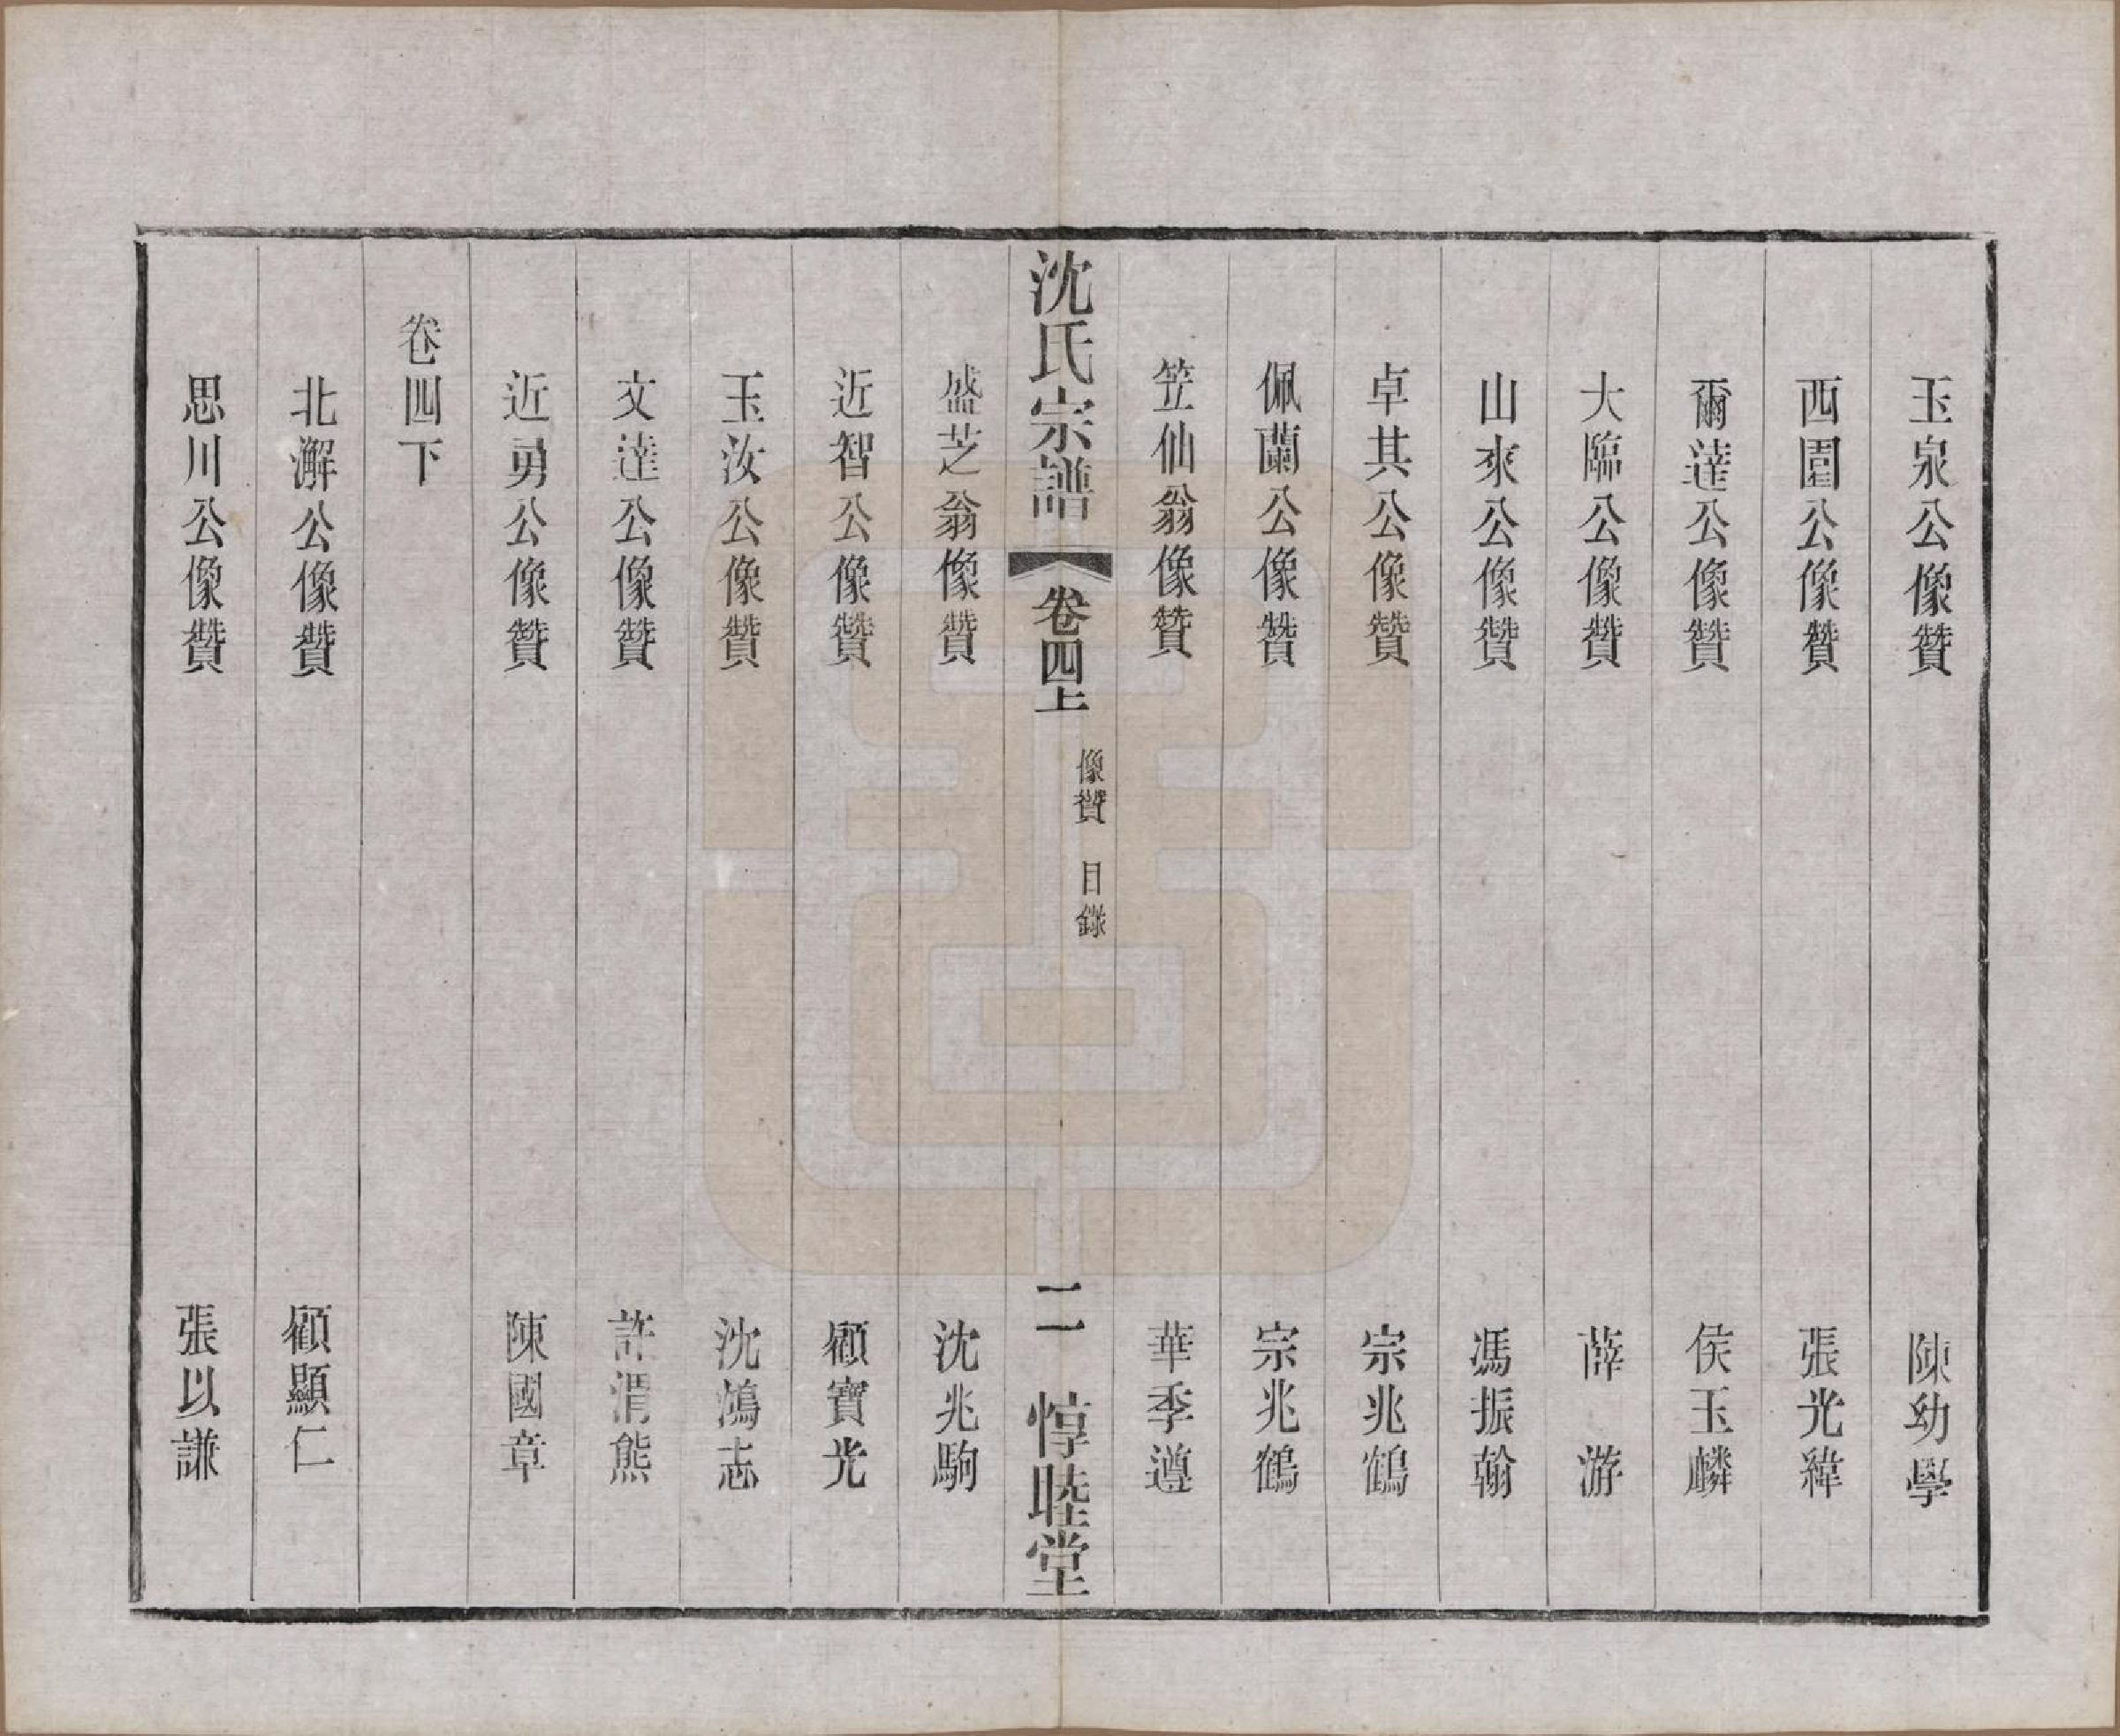 玉泉公像贊 陳幼學
西園公像贊 張光緯
爾達公像贊 侯玉麟
大臨公像贊 薛 游
山來公像贊 馮振翰
卓其公像贊 宗兆鶴
佩蘭公像贊 宗兆鶴
笠仙翁像贊 華季遵
沈氏宗譜 卷四上 像贊 目錄 二 惇睦堂
盛芝翁像贊 沈兆駒
近智公像贊 顧寶光
玉汝公像贊 沈鴻志
文達公像贊 許渭熊
近勇公像贊 陳國章
卷四下
北澥公像贊 顧顯仁
思川公像贊 張以謙